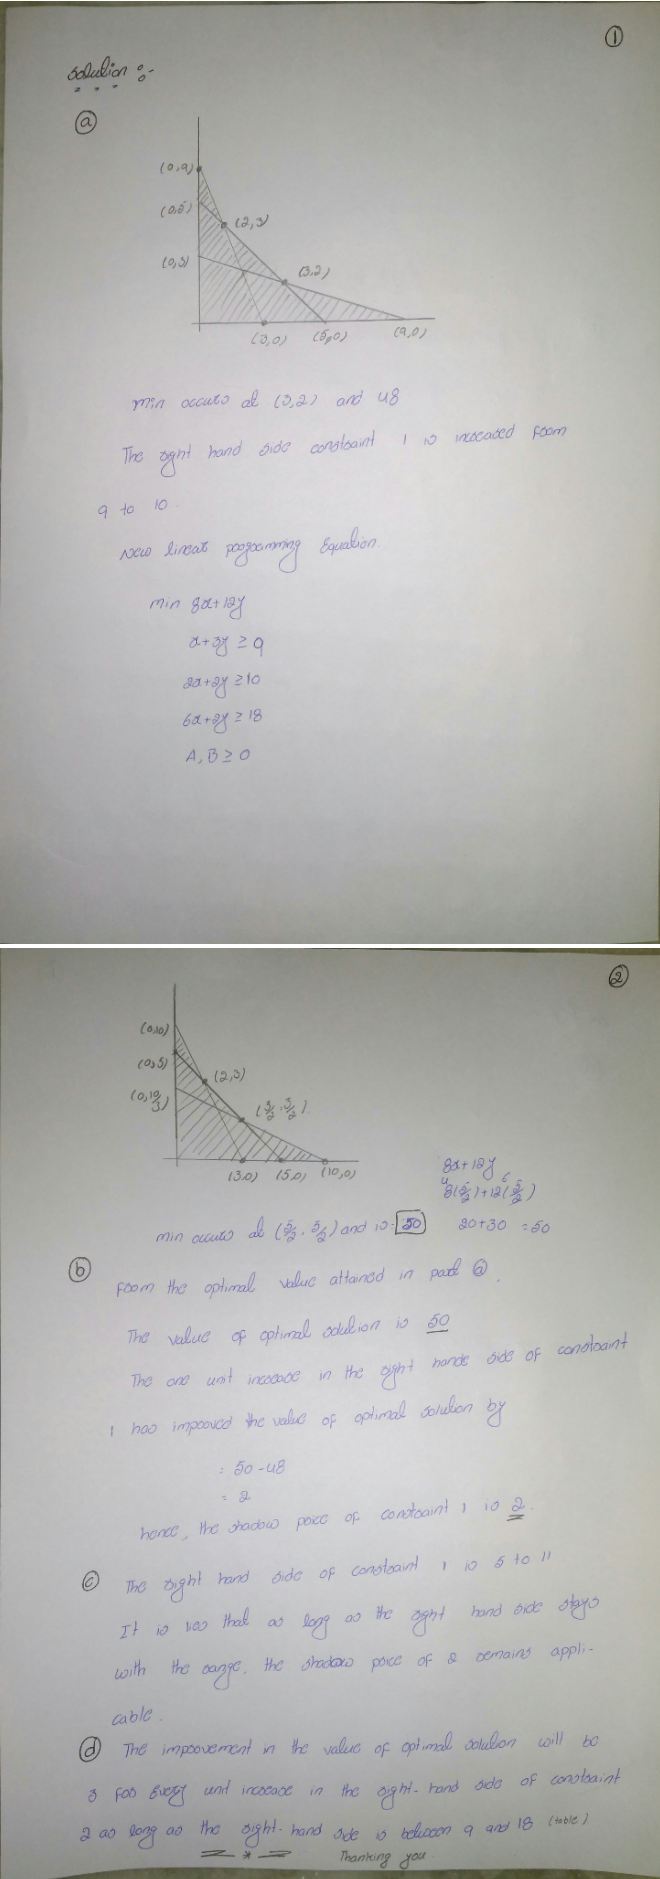 ①
Solution :-
ⓐ
(0,9)
(0,5)
(2,3)
(0,3)
(3,2)
(3,0) (5,0) (9,0)
min occurs at (3,2) and 48
The right hand side constraint 1 is increased from
9 to 10.
New linear programming Equation.
min 8x+12y
x+3y ≥ 9
2x+2y ≥ 10
6x+2y ≥ 18
A, B ≥ 0
②
(0,10)
(0,5)
(2,3)
(0,10/3)
(5/2, 5/2)
(3,0) (5,0) (10,0)
8x+12y
8(5/2)+12(5/2)
4 6
min occurs at (5/2, 5/2) and is 50 20+30 = 50
ⓑ From the optimal value attained in part ⓐ.
The value of optimal solution is 50
The one unit increase in the right hande side of constraint
1 has improved the value of optimal solution by
= 50-48
= 2
hence, the shadow price of constraint 1 is 2.
ⓒ The right hand side of constraint 1 is 5 to 11
It is that as long as the right hand side stays
with the range, the shadow price of 2 remains appli-
cable.
ⓓ The improvement in the value of optimal solution will be
3 for every unit increase in the right-hand side of constraint
2 as long as the right-hand side is between 9 and 18 (table)
* Thanking you.